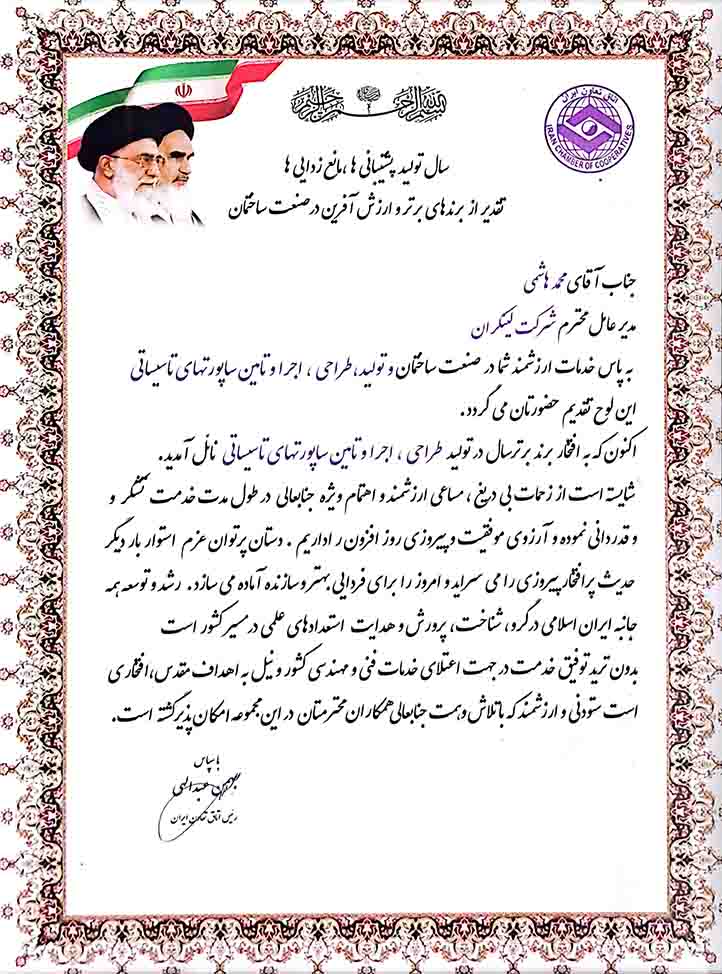 بسم الله الرحمن الرحیم
اتاق تعاون ایران
IRAN CHAMBER OF COOPERATIVES
سال تولید پشتیبانی ها ،مانع زدایی ها
تقدیر از برندهای برتر و ارزش آفرین در صنعت ساختمان
جناب آقای محمد هاشمی
مدیر عامل محترم شرکت لینکران
به پاس خدمات ارزشمند شما در صنعت ساختمان و تولید،طراحی ، اجرا و تامین ساپورتهای تاسیساتی
این لوح تقدیم حضورتان می گردد.
اکنون که به افتخار برند برتر سال در تولید طراحی ، اجرا و تامین ساپورتهای تاسیساتی نائل آمدید.
شایسته است از زحمات بی دریغ ، مساعی ارزشمند و اهتمام ویژه جنابعالی در طول مدت خدمت تشکر و
و قدردانی نموده و آرزوی موفقیت و پیروزی روز افزون را داریم . دستان پرتوان عزم استوار بار دیگر
حدیث پرافتخار پیروزی را می سراید و امروز را برای فردایی بهتر و سازنده آماده می سازد. رشد و توسعه همه
جانبه ایران اسلامی در گرو، شناخت، پرورش و هدایت استعدادهای علمی در مسیر کشور است
بدون تردید توفیق خدمت در جهت اعتلای خدمات فنی و مهندسی کشور و نیل به اهداف مقدس،افتخاری
است ستودنی و ارزشمند که با تلاش و همت جنابعالی همکاران محترمتان در این مجموعه امکان پذیر گشته است.
با سپاس
بهمن عبدالهی
رئیس اتاق تعاون ایران